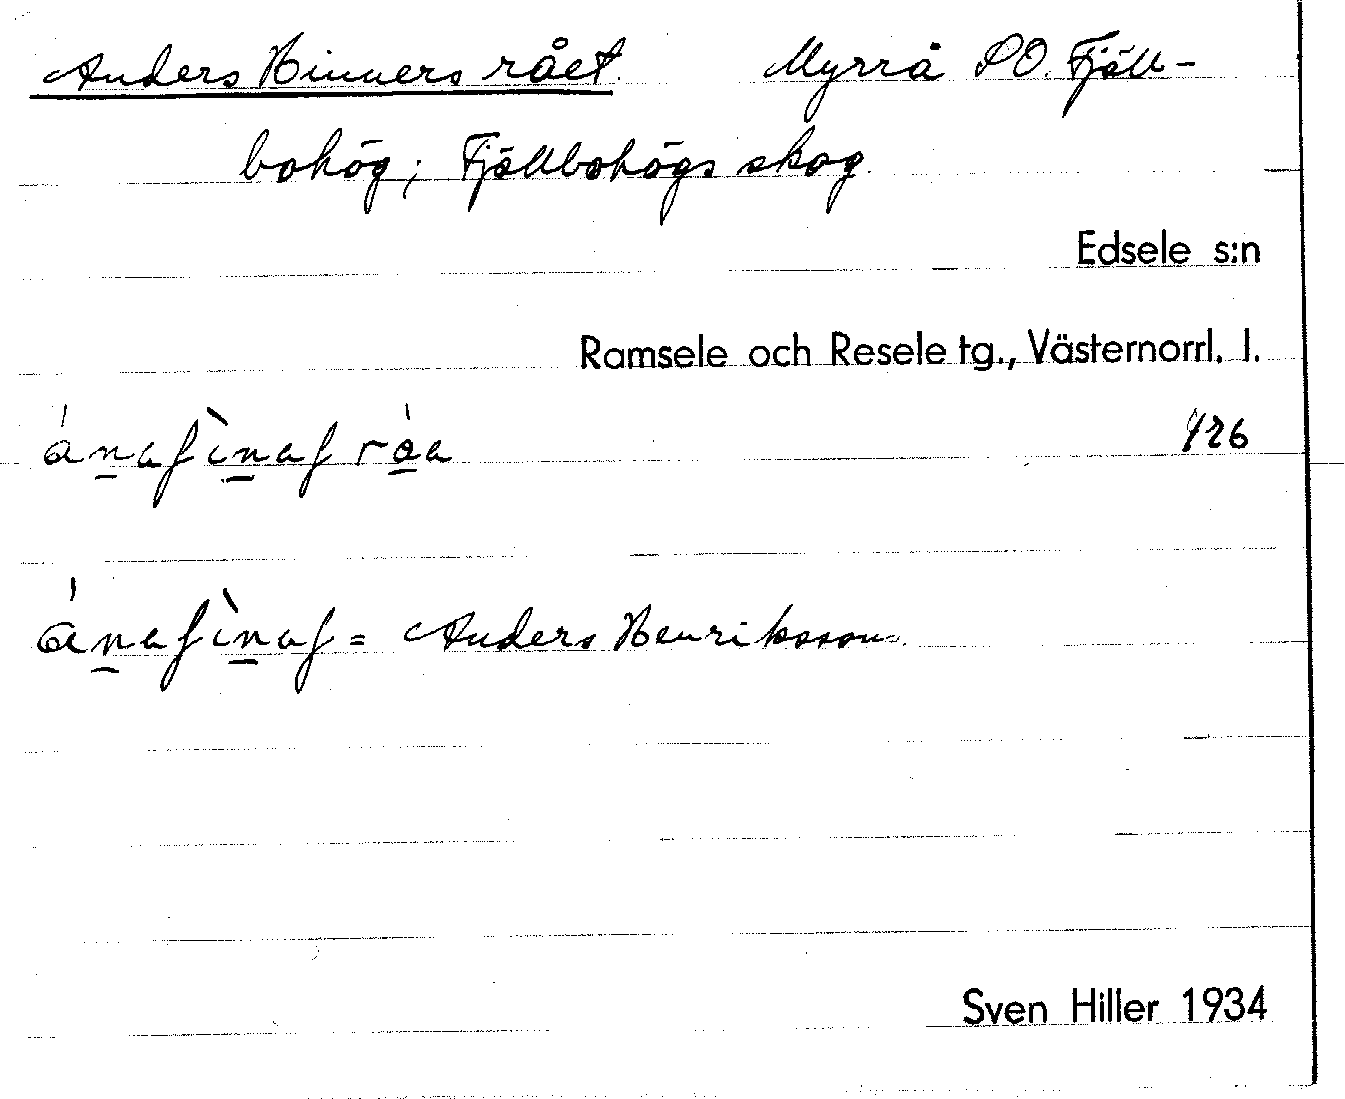 Anders Hinners rået. Myrrå PO. Fjäll-
bohög; Fjällbohögs skog.
Edsele s:n
Ramsele och Resele tg., Västernorrl. l.
426
= Anders Henriksson.
Sven Hiller 1934